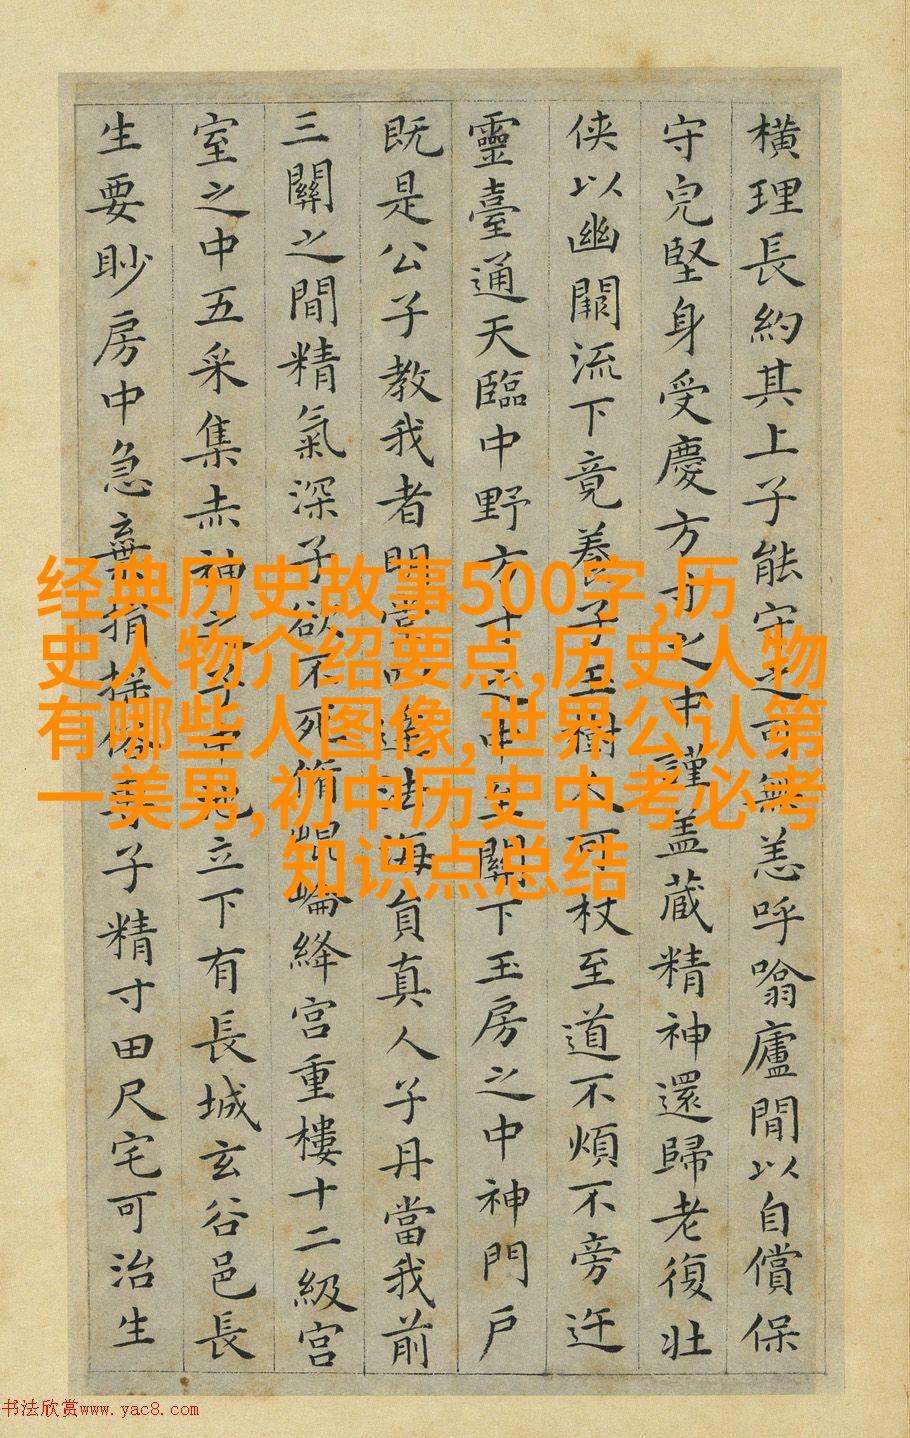 橫理長約其上子能守之可無恙呼噏廬間以自償保
守皃堅身受慶方寸之中謹盖蔵精神還歸老復壯
侠以幽闕流下竟養子玉樹人可杖至道不煩不旁迕
靈臺通天臨中野方寸之中至關下玉房之中神門戶
既是公子教我者明堂四達法海貟真人子丹當我前
三關之間精氣深子欲不死脩崐崘絳宮重樓十二級宮
室之中五采集赤神之子中池立下有長城玄谷邑長
生要眇房中急棄捐搖俗專子精寸田尺宅可治生
经典历史故事500字,历
史人物介绍要点,历史人物
有哪些人图像,世界公认第
一美男,初中历史中考必考
知识点总结
书法欣赏www.yac8.com